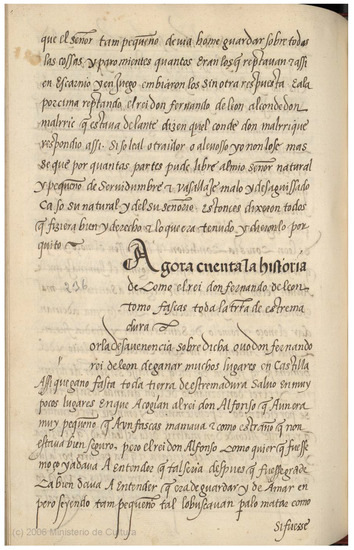 que el señor tam pequeño deuia home guardar sobre todas
las cossas, y pararon mientes quantos eran los q̃ reptauan z assi
en escarnio y en juego embiaron los sin otra respuesta. E a la
poczima reptando el rei don fernando de leon al conde don
malrric q̃ estaua delante dizen quel conde don malrrique
respondio assi. Si so leal o traidor o aleuoso yo non lo se mas
se que por quantas partes pude libre al mio señor natural
y pequeño de seruidumbre z vasallaje malo y desaguissado
ca so su natural y del su señorio. estonces dixeron todos
q̃ fiziera bien y derecho z lo que era tenudo y dieronlo por
quito
Agora cuenta la historia
de Como el rei don fernando de leon
tomo fascas toda la trr̃a de estrema
dura
or la desauenencia sobre dicha ouo don fernando
rei de leon de ganar muchos lugares en Castilla
Assi que gano fasta toda tierra de estremadura Saluo en muy
pocos lugares en que Acogian al rei don Alfonso q̃ Aun era
muy pequeño q̃ Aun fascas mamaua z como estraño q̃ non
estaua bien seguro. pero el rei don Alfonso Como quier q̃ fuesse
moço ya daua A entender que tal seria despues q̃ fuesse grãde
Ca bien daua A entender q̃ era de guardar y de Amar en
pero seyendo tam pequeño tal lo buscauan palo matar como
Si fuesse
(c) 2006 Ministerio de Cultura